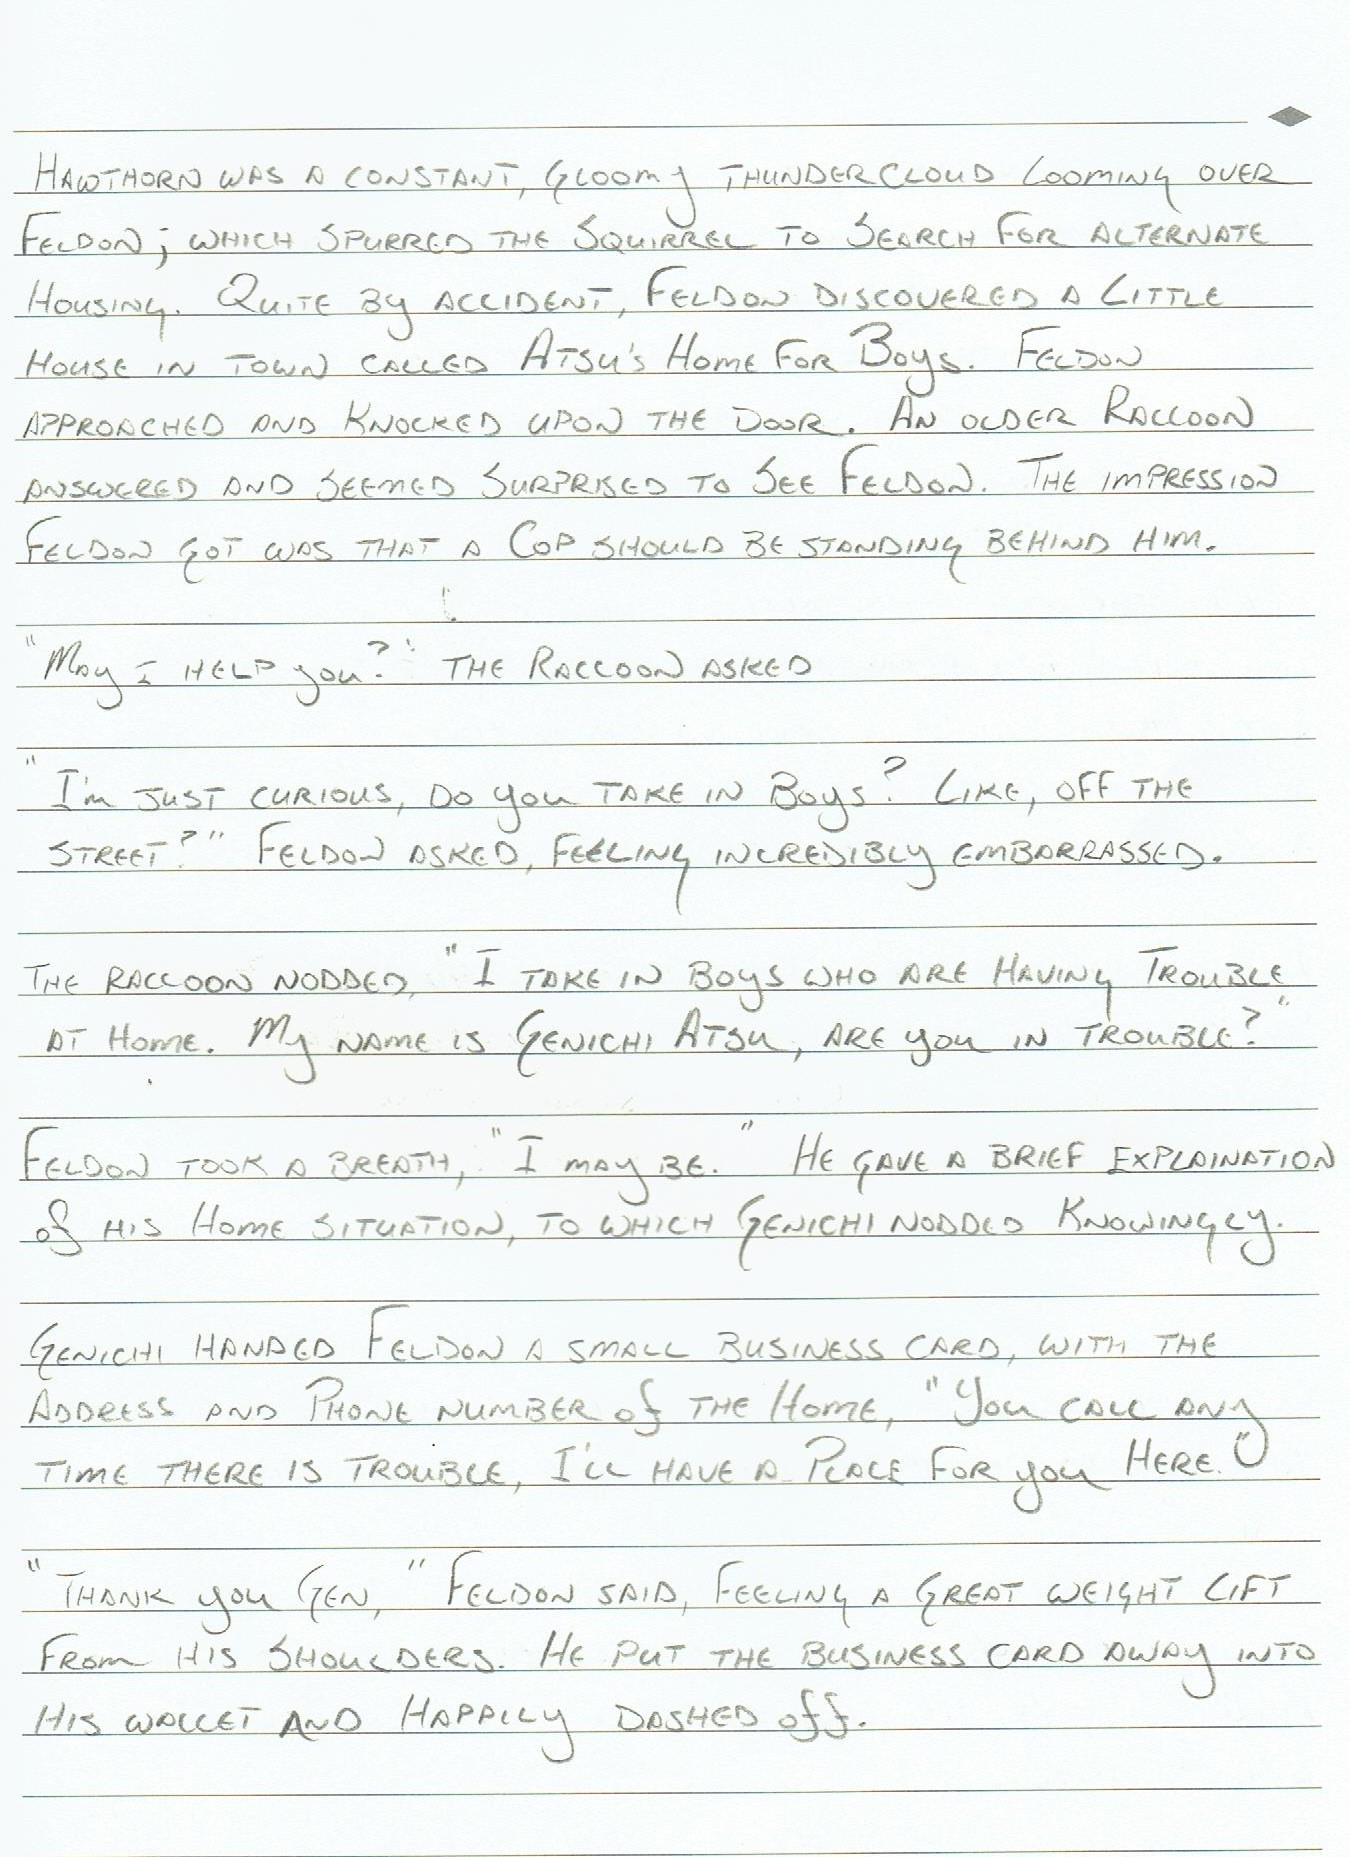 Hawthorn was a constant, gloomy thundercloud looming over
Feldon; which spurred the Squirrel to search for alternate
housing. Quite by accident, Feldon discovered a little
house in town called Atsu's Home For Boys. Feldon
approached and knocked upon the door. An older Raccoon
answered and seemed surprised to see Feldon. The impression
Feldon got was that a cop should be standing behind him.
"May I help you?" the Raccoon asked
"I'm just curious, do you take in boys? Like, off the
street?" Feldon asked, feeling incredibly embarrassed.
The raccoon nodded, "I take in boys who are having trouble
at home. My name is Genichi Atsu, are you in trouble?"
Feldon took a breath, "I may be." He gave a brief explaination
of his home situation, to which Genichi nodded knowingly.
Genichi handed Feldon a small business card, with the
address and phone number of the home, "You call any
time there is trouble, I'll have a place for you here."
"Thank you Gen," Feldon said, feeling a great weight lift
from his shoulders. He put the business card away into
his wallet and happily dashed off.